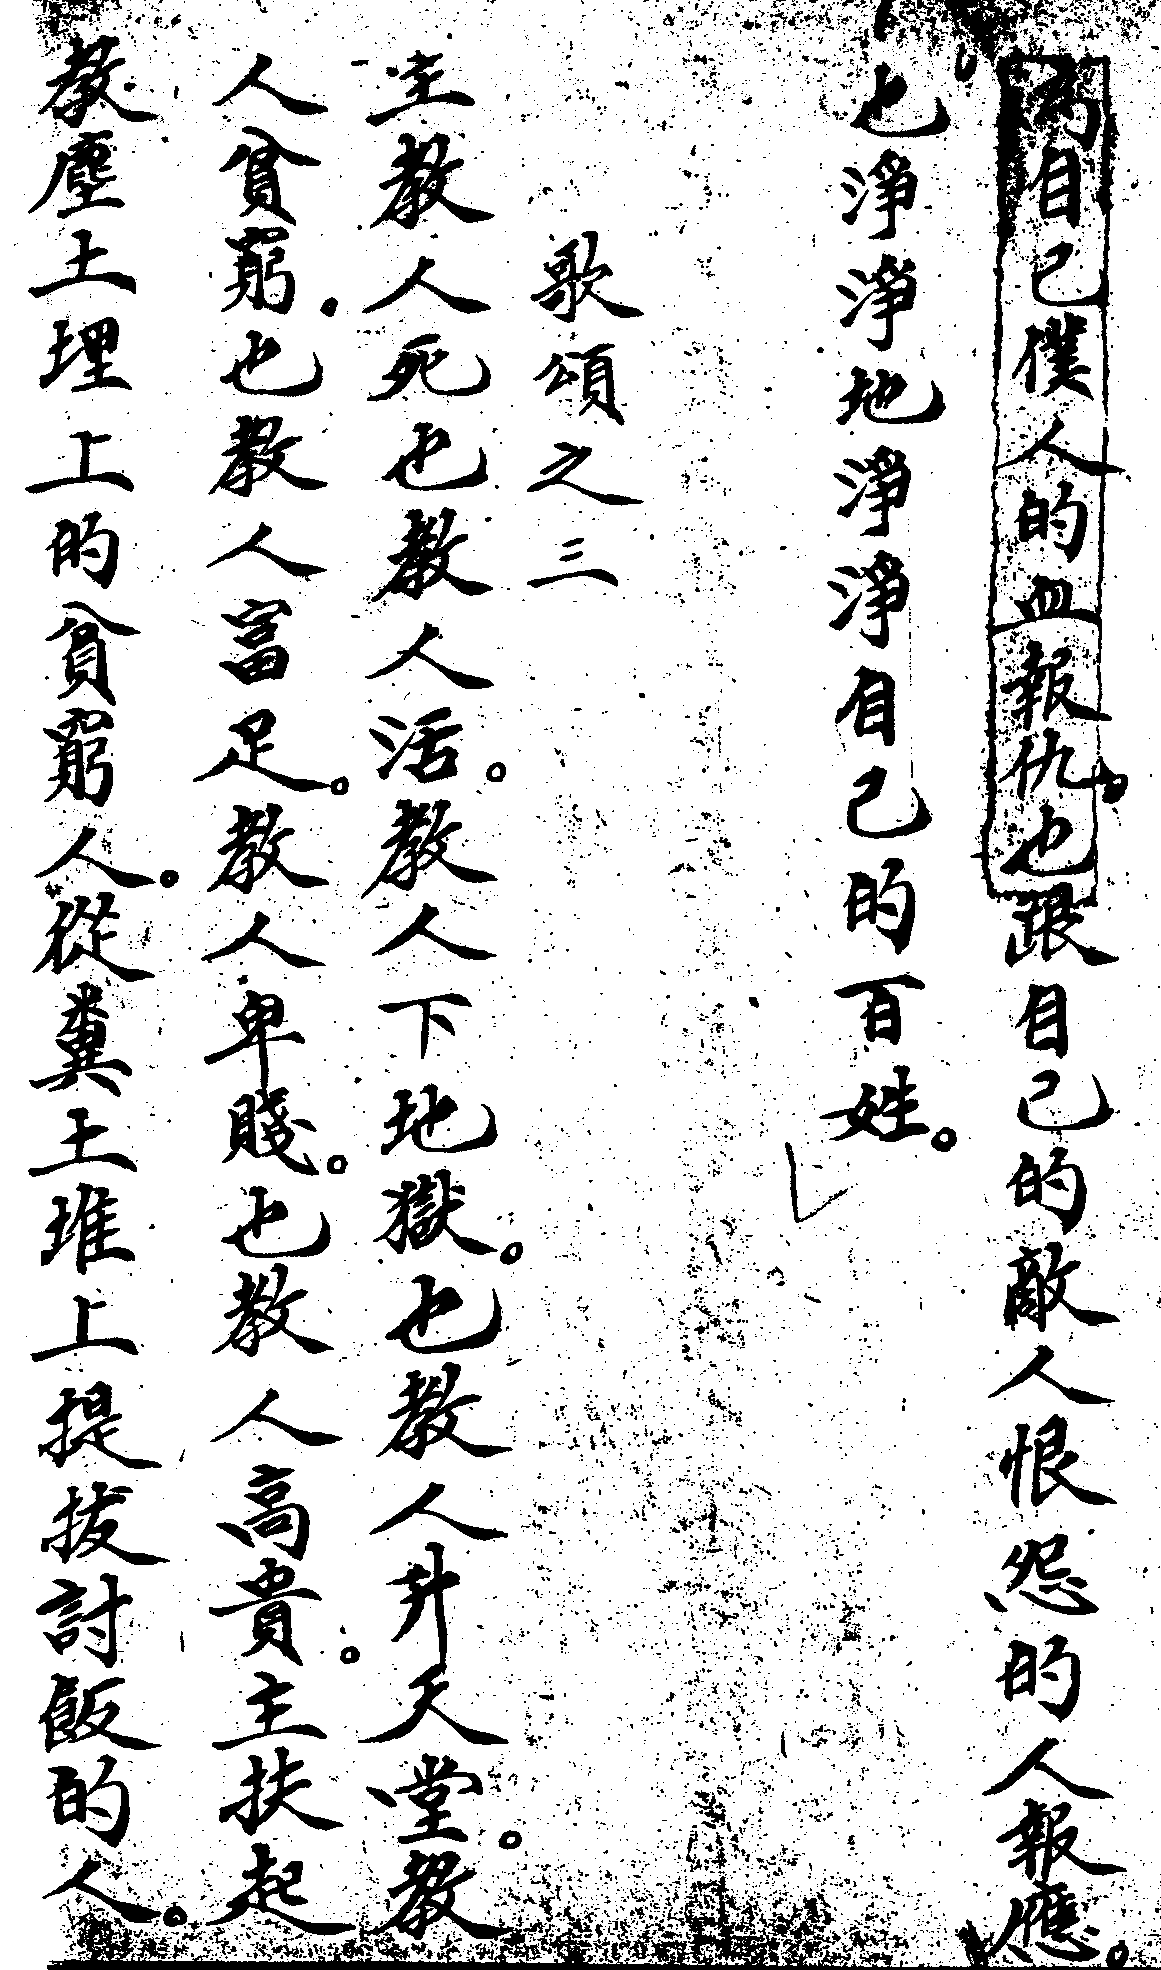 為自己僕人的血報仇。也跟自己的敵人恨怨的人報應。
也淨淨地淨淨自己的百姓。
歌頌之三
主教人死也教人活。教人下地獄。也教人升天堂。教
人貧窮。也教人富足。教人卑賤。也教人高貴。主扶起
教塵土埋上的貧窮人。從糞土堆上提拔討飯的人。